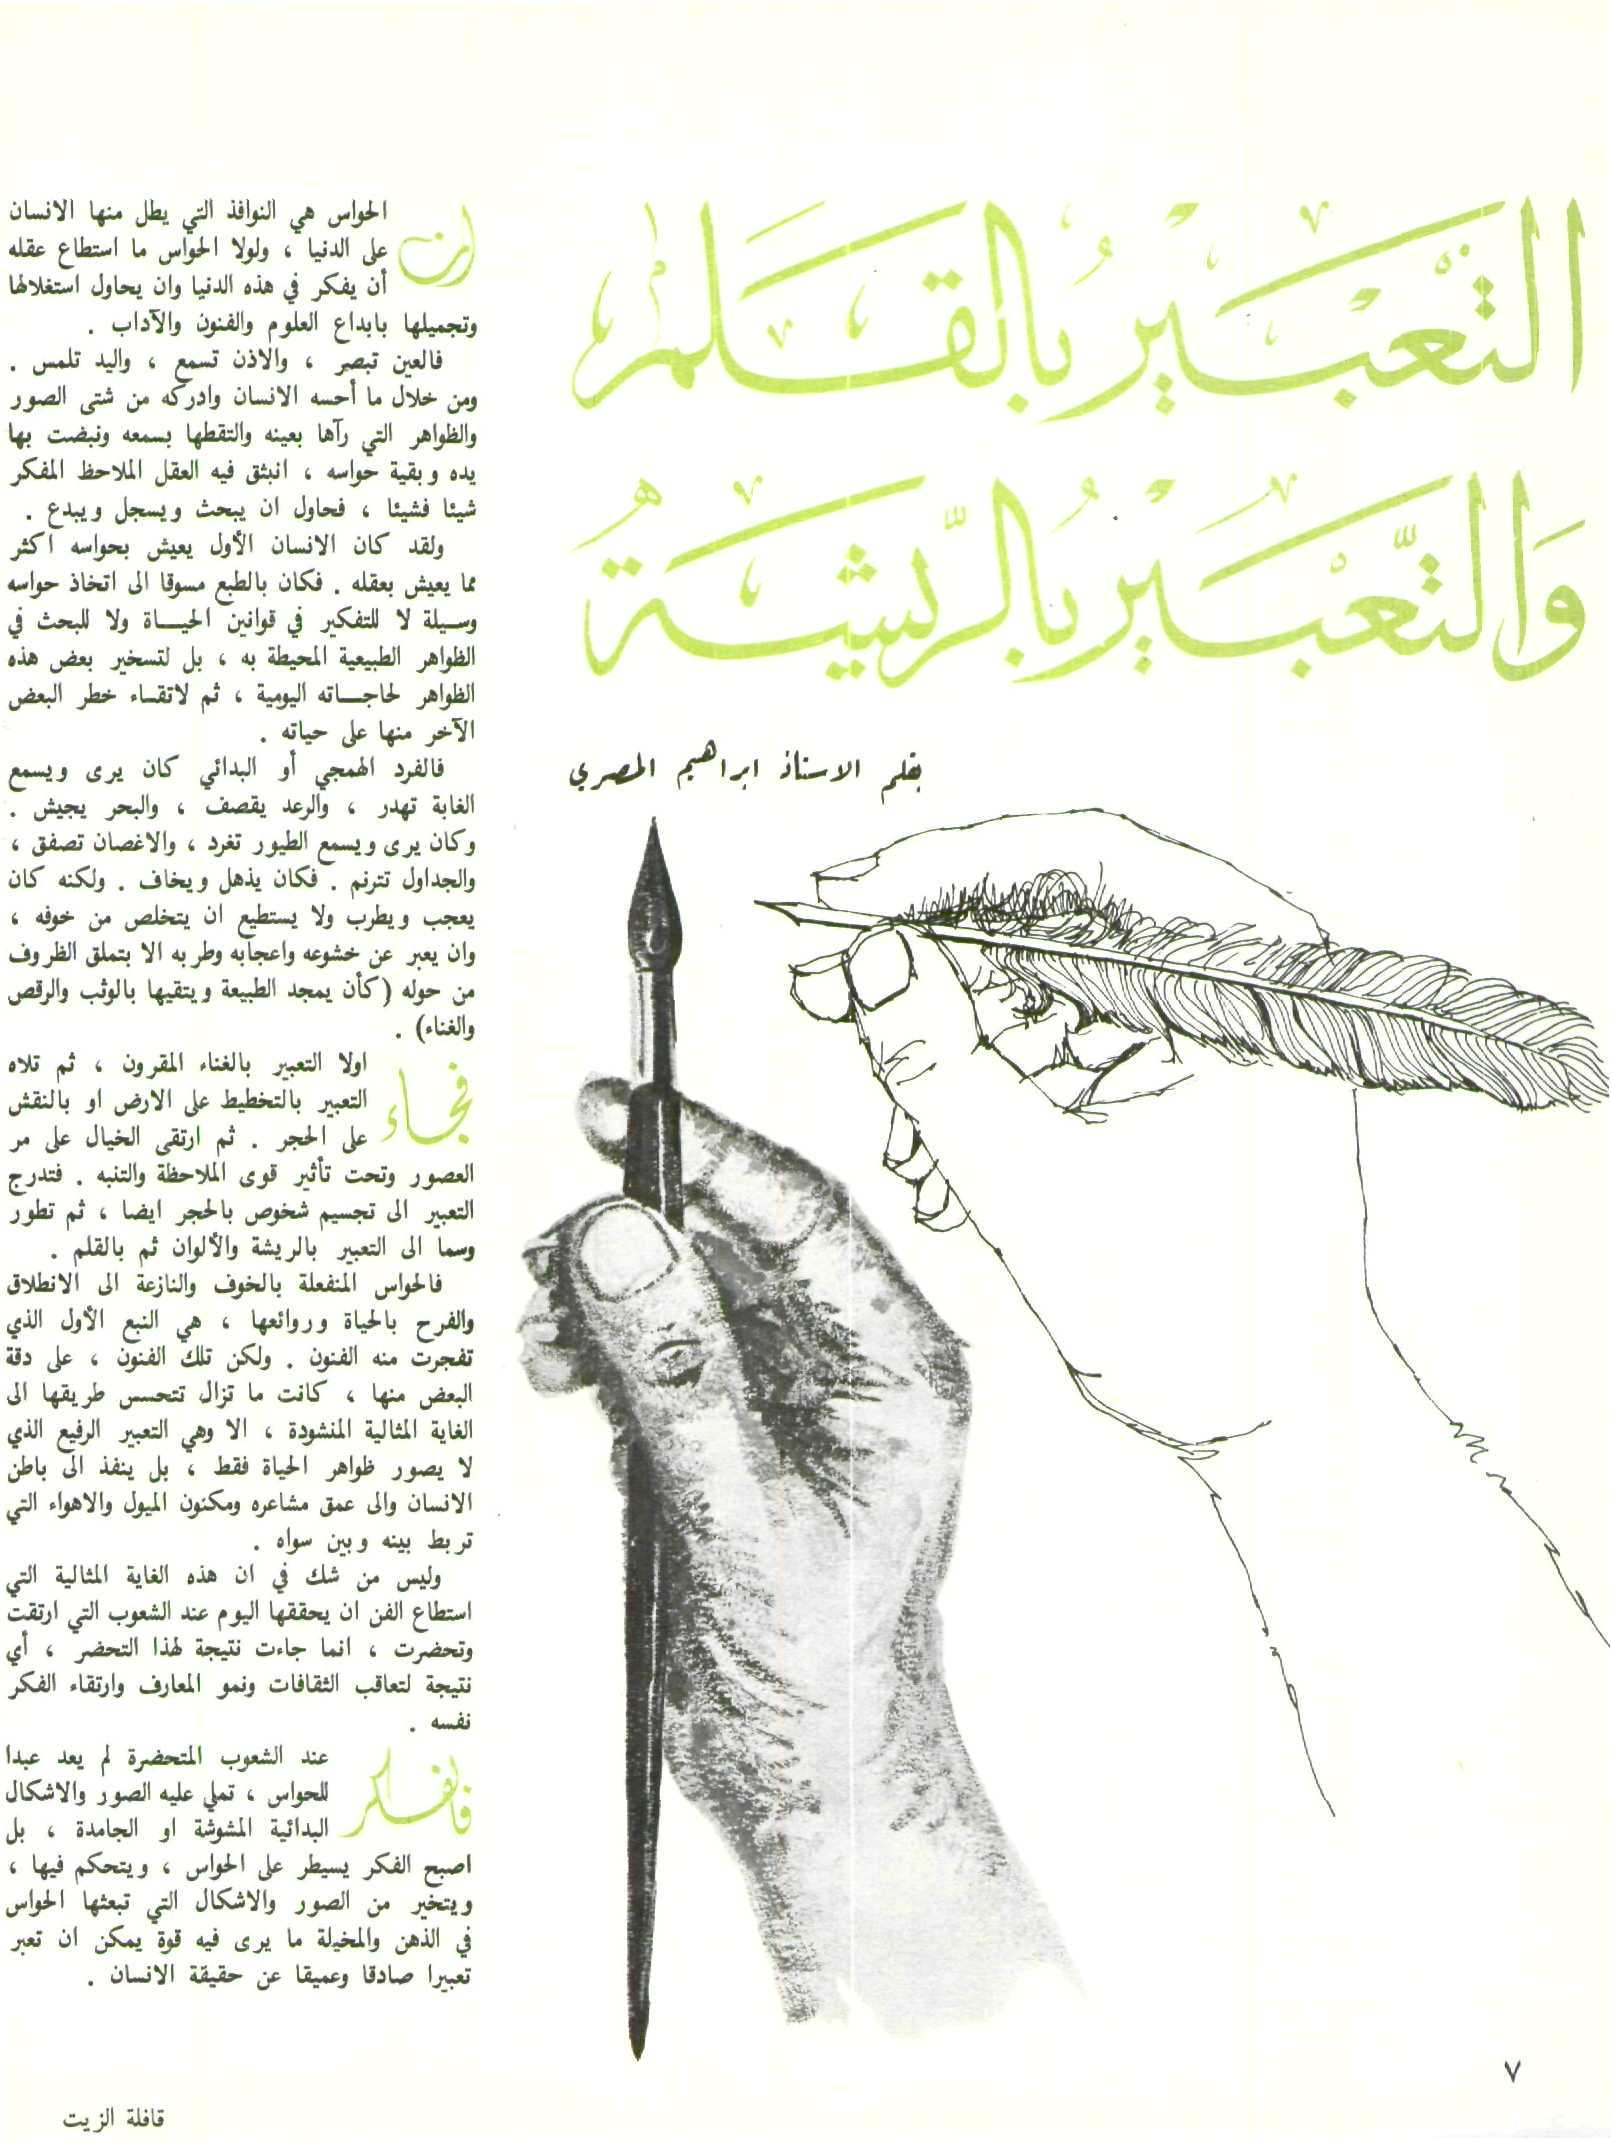 التعبير بالقلم
والتعبير بالريشة
بقلم الاستاذ ابراهيم المصري
ان الحواس هي النوافذ التي يطل منها الانسان
على الدنيا ، ولولا الحواس ما استطاع عقله
أن يفكر في هذه الدنيا وان يحاول استغلالها
وتجميلها بابداع العلوم والفنون والآداب .
فالعين تبصر ، والاذن تسمع ، واليد تلمس .
ومن خلال ما أحسه الانسان وادركه من شتى الصور
والظواهر التي رآها بعينه والتقطها بسمعه ونبضت بها
يده وبقية حواسه ، انبثق فيه العقل الملاحظ المفكر
شيئا فشيئا ، فحاول ان يبحث ويسجل ويبدع .
ولقد كان الانسان الأول يعيش بحواسه اكثر
مما يعيش بعقله . فكان بالطبع مسوقا الى اتخاذ حواسه
وسيلة لا للتفكير في قوانين الحياة ولا للبحث في
الظواهر الطبيعية المحيطة به ، بل لتسخير بعض هذه
الظواهر لحاجاته اليومية ، ثم لاتقاء خطر البعض
الآخر منها على حياته .
فالفرد الهمجي أو البدائي كان يرى ويسمع
الغابة تهدر ، والرعد يقصف ، والبحر يجيش .
وكان يرى ويسمع الطيور تغرد ، والاغصان تصفق ،
والجداول تترنم . فكان يذهل ويخاف . ولكنه كان
يعجب ويطرب ولا يستطيع ان يتخلص من خوفه ،
وان يعبر عن خشوعه واعجابه وطربه الا بتملق الظروف
من حوله (كأن يمجد الطبيعة ويتقيها بالوثب والرقص
والغناء) .
فجاء اولا التعبير بالغناء المقرون ، ثم تلاه
التعبير بالتخطيط على الارض او بالنقش
على الحجر . ثم ارتقى الخيال على مر
العصور وتحت تأثير قوى الملاحظة والتنبه . فتدرج
التعبير الى تجسيم شخوص بالحجر ايضا ، ثم تطور
وسما الى التعبير بالريشة والألوان ثم بالقلم .
فالحواس المنفعلة بالخوف والنازعة الى الانطلاق
والفرح بالحياة وروائعها ، هي النبع الأول الذي
تفجرت منه الفنون . ولكن تلك الفنون ، على دقة
البعض منها ، كانت ما تزال تتحسس طريقها الى
الغاية المثالية المنشودة ، الا وهي التعبير الرفيع الذي
لا يصور ظواهر الحياة فقط ، بل ينفذ الى باطن
الانسان والى عمق مشاعره ومكنون الميول والاهواء التي
تربط بينه وبين سواه .
وليس من شك في ان هذه الغاية المثالية التي
استطاع الفن ان يحققها اليوم عند الشعوب التي ارتقت
وتحضرت ، انما جاءت نتيجة لهذا التحضر ، أي
نتيجة لتعاقب الثقافات ونمو المعارف وارتقاء الفكر
نفسه .
فالفكر عند الشعوب المتحضرة لم يعد عبدا
للحواس ، تملي عليه الصور والاشكال
البدائية المشوشة او الجامدة ، بل
اصبح الفكر يسيطر على الحواس ، ويتحكم فيها ،
ويتخير من الصور والاشكال التي تبعثها الحواس
في الذهن والمخيلة ما يرى فيه قوة يمكن ان تعبر
تعبيرا صادقا وعميقا عن حقيقة الانسان .
٧
قافلة الزيت